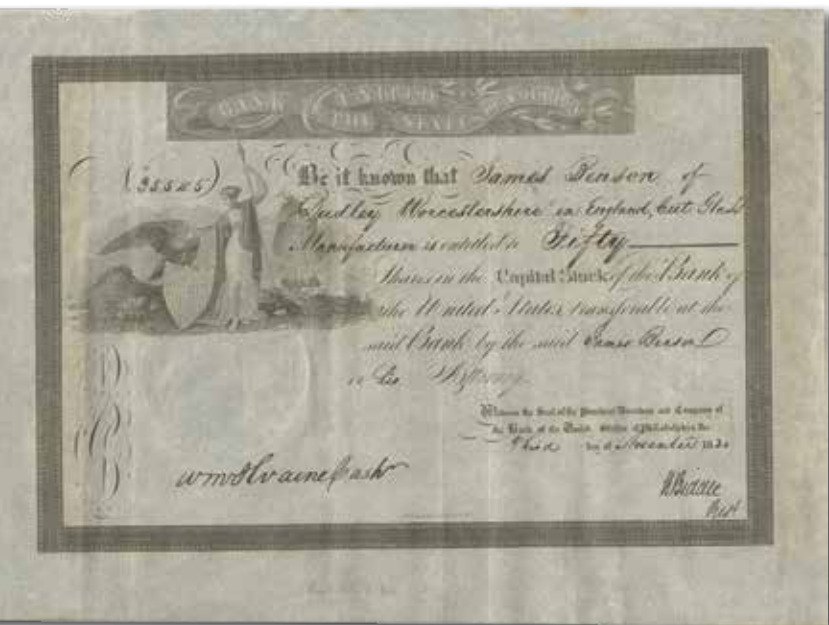 BANK UNITED
THE STATES
(35545) Be it known that James Benson of
Dudley Worcestershire in England, Cut Glass
Manufacturer is entitled to Fifty
Shares in the Capital Stock of the Bank of
the United States transferable at the
said Bank by the said James Benson
or his Attorney
Witness the Seal of the President Directors and Company of
the Bank of the United States Philadelphia the
Third day of November 1830
Cash
N Biddle
Prest